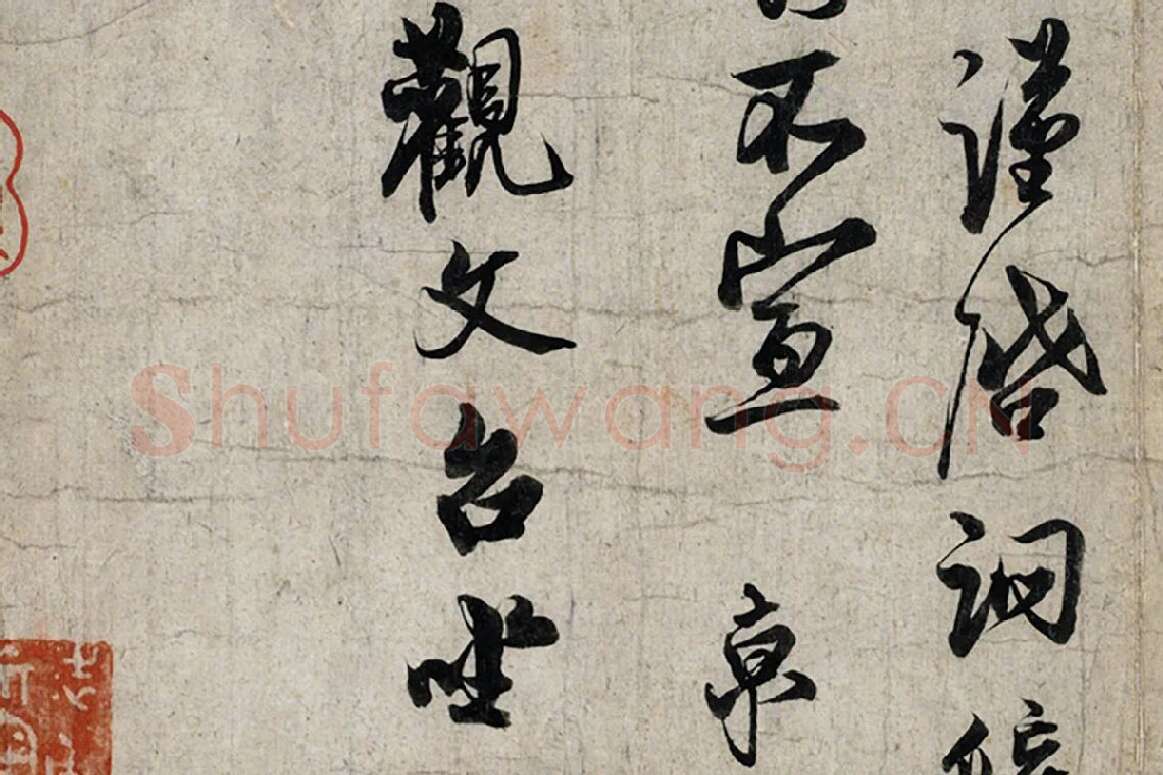 謹啓詗
不宣 京
觀文台坐
Shufawang.CN